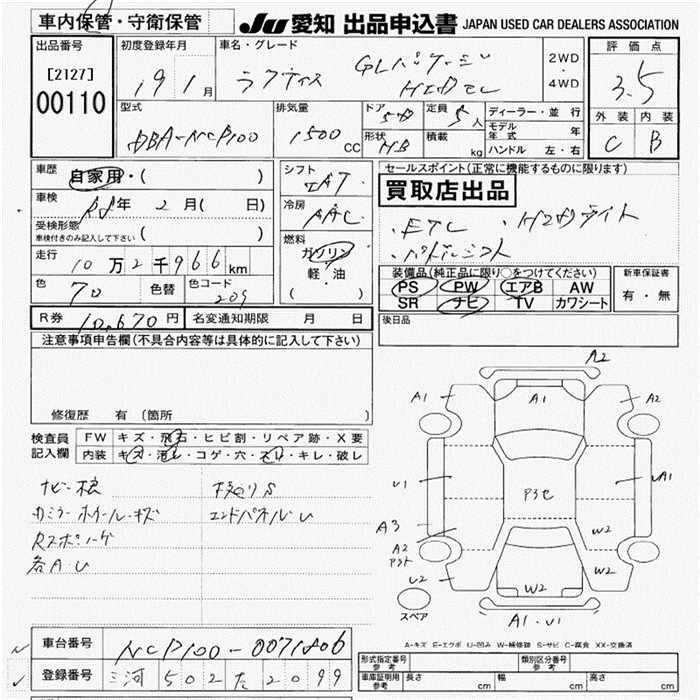 車内保管・守衛保管
JU 愛知 出品申込書 JAPAN USED CAR DEALERS ASSOCIATION
出品番号
[2127]
00110
初度登録年月
19 1 月
車名・グレード
ラクティス GLパケージ
HIDセレ
2WD
・
4WD
評価点
3.5
外装 内装
C B
型式
DBA-NCP100
排気量
1500 CC
ドア 5D
形状 HB
定員 5 人
積載 kg
ディーラー・並行
モデル年式 年
ハンドル 左・右
車歴 自家用・( )
車検 年 2 月( 日)
受検形態
車検付きのみ記入して下さい ( )
走行 10 万 2 千 966 km
色 70 色替 色コード 209
シフト IAT
冷房 AAC
燃料
ガソリン
軽・油
( )
セールスポイント(正常に機能するものに限ります)
買取店出品
・ETC ・HIDライト
・パドルシフト
装備品(純正品に限り○をつけてください)
PS PW エアB AW
SR ナビ TV カワシート
新車保証書
有・無
R券 10,670 円 名変通知期限 月 日
後日品
注意事項申告欄(不具合内容等は具体的に記入して下さい)
修復歴 有 (箇所 )
検査員
記入欄
FW キズ・飛石・ヒビ割・リペア跡・X要
内装 キズ・汚レ・コゲ・穴・スレ・キレ・破レ
ナビ-
カミラーホイール・キズ エンドパネルU
Rスポ
各A.U
A2
A1 A1 A2
U1 P3セ UA1
A3 W2
A2
U2 W2 W2
A1・U1
スペア
A-キズ E-エクボ U-凹み W-補修跡 S-サビ C-腐食 XX-交換済
車台番号 NCP100-0071806
登録番号 三河 502 た 2099
形式指定番号 参考
類別区分番号 参考
車庫証明用 参考 長さ cm 幅 cm 高さ cm